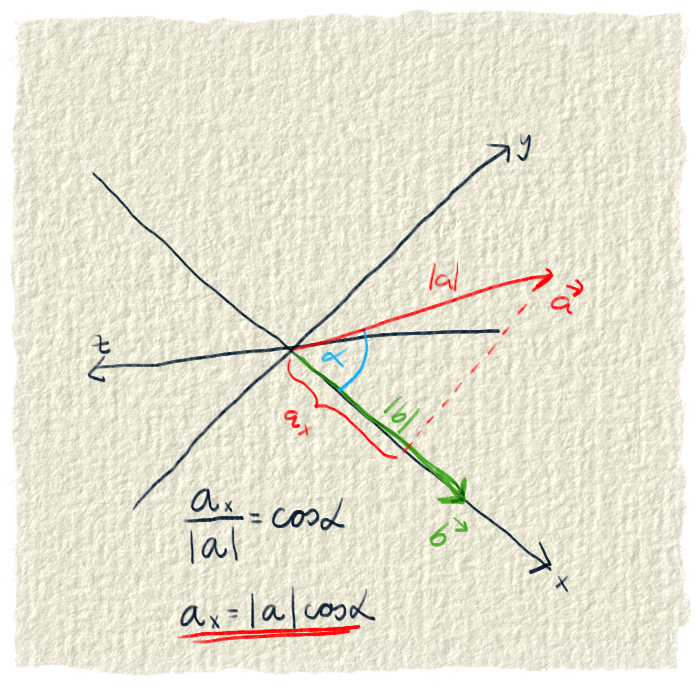 y
|a|
a⃗
z
α
|b|
aₓ
b⃗
x
aₓ/|a| = cosα
aₓ = |a|cosα